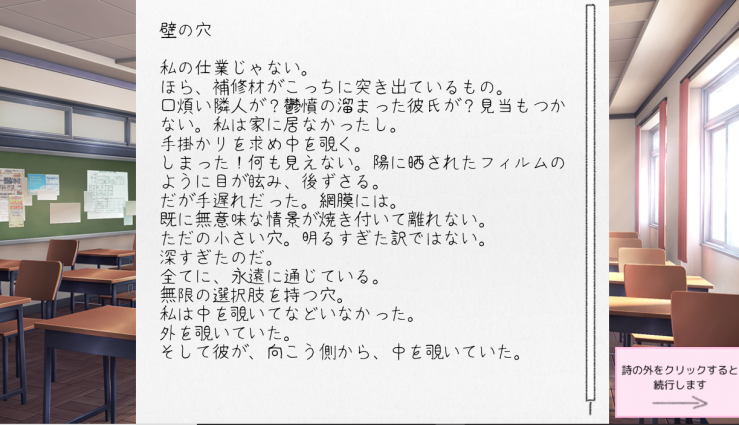 壁の穴
私の仕業じゃない。
ほら、補修材がこっちに突き出ているもの。
口煩い隣人が？鬱憤の溜まった彼氏が？見当もつか
ない。私は家に居なかったし。
手掛かりを求め中を覗く。
しまった！何も見えない。陽に晒されたフィルムの
ように目が眩み、後ずさる。
だが手遅れだった。網膜には。
既に無意味な情景が焼き付いて離れない。
ただの小さい穴。明るすぎた訳ではない。
深すぎたのだ。
全てに、永遠に通じている。
無限の選択肢を持つ穴。
私は中を覗いてなどいなかった。
外を覗いていた。
そして彼が、向こう側から、中を覗いていた。
詩の外をクリックすると
続行します